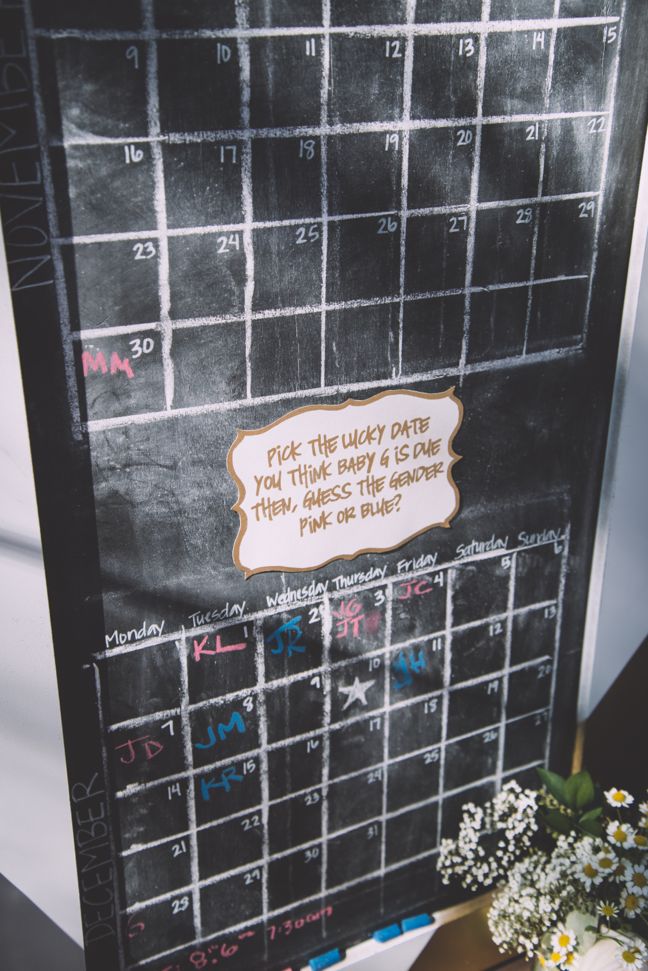 NOVEMBER
9 10 11 12 13 14 15
16 17 18 19 20 21 22
23 24 25 26 27 28 29
30
MM
PICK THE LUCKY DATE
YOU THINK BABY G IS DUE
THEN, GUESS THE GENDER
PINK OR BLUE?
DECEMBER
Monday Tuesday Wednesday Thursday Friday Saturday Sunday
1 2 3 4 5 6
KL JR NG JC
JT
7 8 9 10 11 12 13
JD JM JH
14 15 16 17 18 19 20
KR
21 22 23 24 25 26 27
28 29 30 31
S
8:6 7:30am